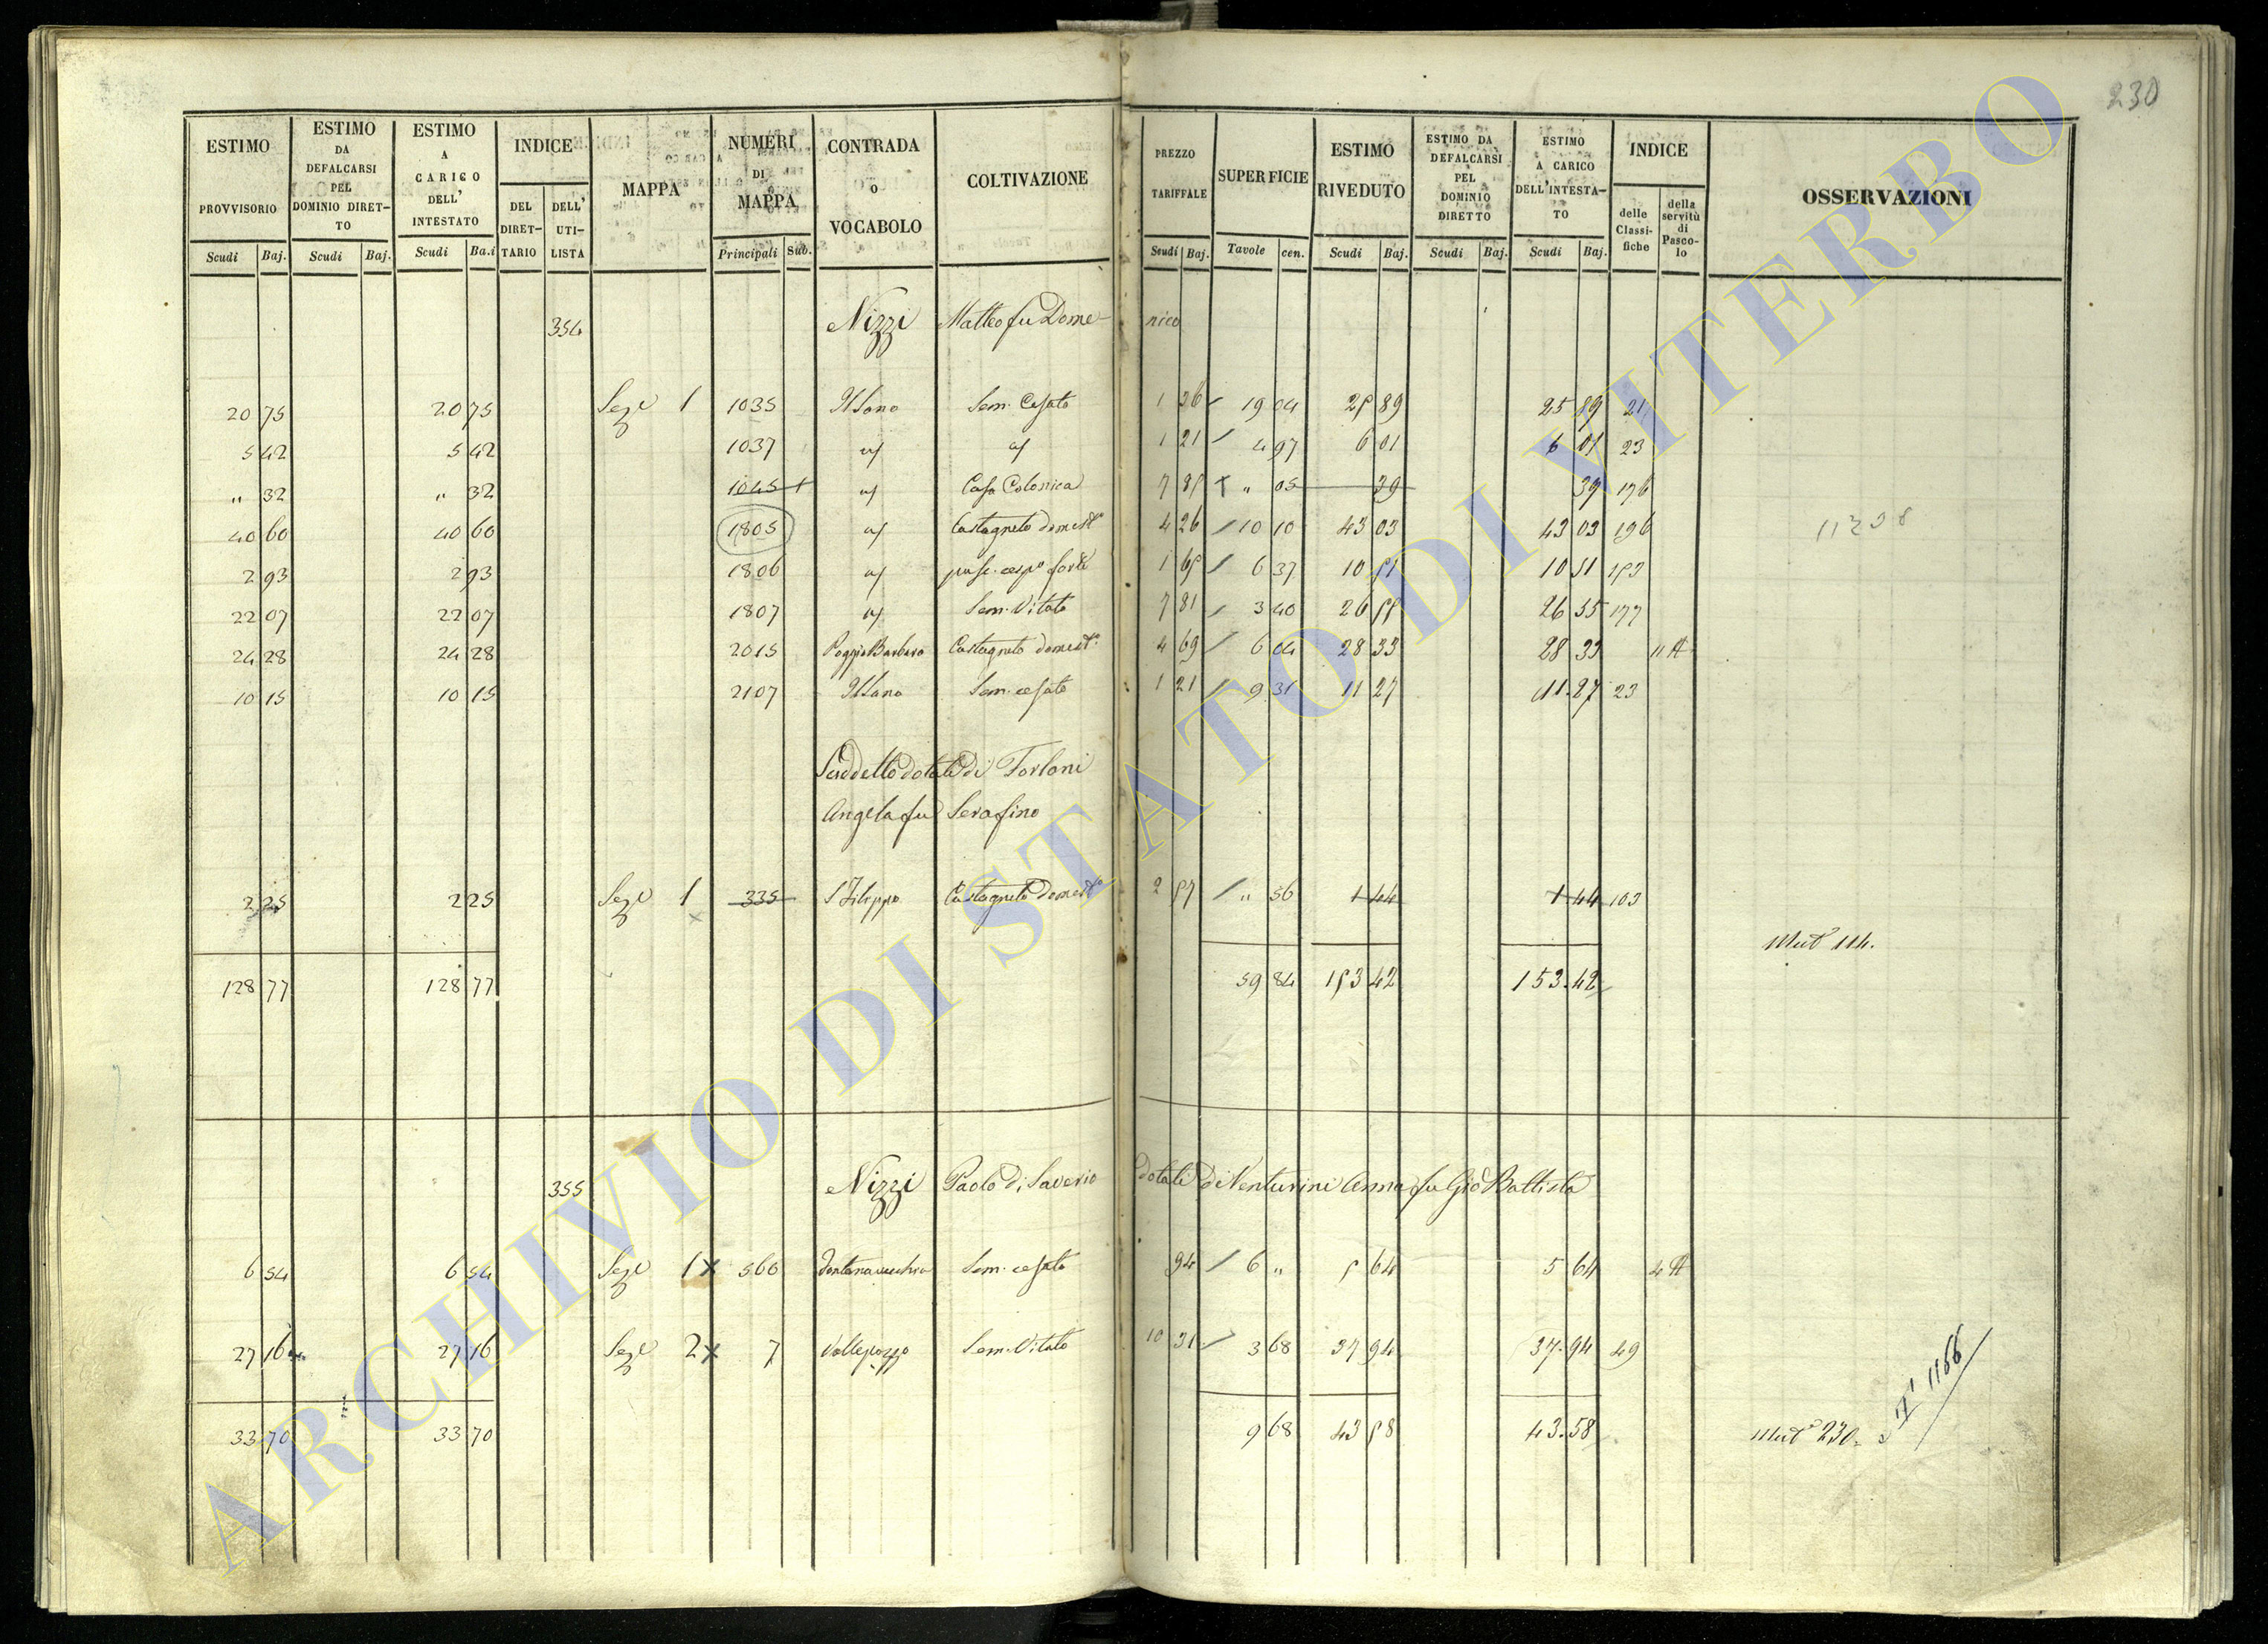 230
ESTIMO PROVVISORIO
ESTIMO DA DEFALCARSI PEL DOMINIO DIRET-TO
ESTIMO A CARICO DELL' INTESTATO
INDICE
DEL DIRET-TARIO
DELL' UTI-LISTA
MAPPA
NUMERI DI MAPPA
CONTRADA O VOCABOLO
COLTIVAZIONE
PREZZO TARIFFALE
SUPERFICIE
ESTIMO RIVEDUTO
ESTIMO DA DEFALCARSI PEL DOMINIO DIRETTO
ESTIMO A CARICO DELL'INTESTA-TO
INDICE
delle Classi-fiche
della servitù di Pasco-lo
OSSERVAZIONI
Scudi Baj. Scudi Baj. Scudi Ba.i Principali Sub. Scudi Baj. Tavole cen. Scudi Baj. Scudi Baj. Scudi Baj.
354 Nizzi Matteo fu Dome-nico
20 75 20 75 Seze 1 1035 Sem. Cesato 1 36 19 04 25 89 25 89 21
5 42 5 42 1037 1 21 4 97 6 01 6 01 23
" 32 " 32 1045 1 Casa Colonica 7 85 " 05 39 39 176
40 60 40 60 1805 Castagneto domest.º 4 26 10 10 43 03 43 03 196
11238
2 93 2 93 1806 pasc. cesp.º forte 1 65 6 37 10 51 10 51 153
22 07 22 07 1807 Sem. Vitato 7 81 3 40 26 55 26 55 177
24 28 24 28 2015 Poggio Barbaro Castagneto domest.º 4 69 6 04 28 33 28 33 11 A
10 15 10 15 2107 Sem. cesato 1 21 9 31 11 27 11.27 23
Suddetto dotale di Torloni
Angela fu Serafino
2 25 2 25 Seze 1 335 S Filippo Castagneto Domest.º 2 57 " 56 1 44 1 44 103
Mut.e 114.
128 77 128 77 59 84 153 42 153.42
355 Nizzi Paolo di Saverio dotali di Venturini Anna fu Gio Battista
6 54 6 54 Seze 1 x 560 Fontanavecchia Sem. cesato 94 6 " 5 64 5 64 4 A
27 16 27 16 Seze 2 x 7 Vallepozzo Sem. Vitato 10 31 3 68 37 94 37.94 49
33 70 33 70 9 68 43 58 43.58
Mut.e 230.
1166
ARCHIVIO DI STATO DI VITERBO